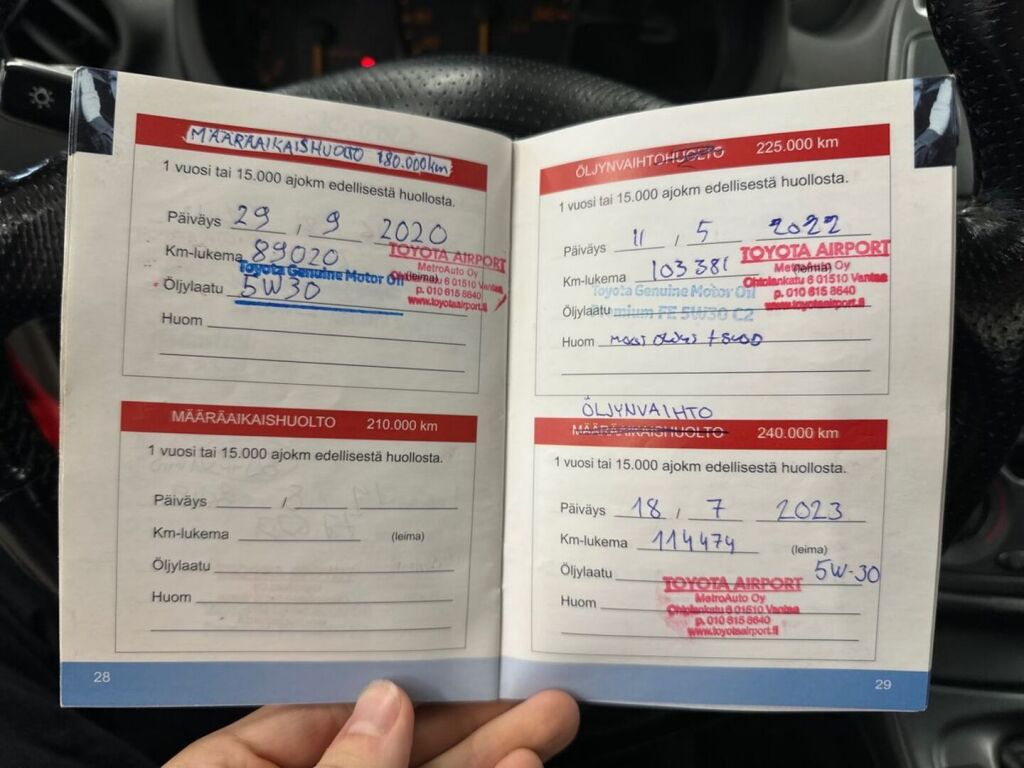 MÄÄRÄAIKAISHUOLTO 180.000km
1 vuosi tai 15.000 ajokm edellisestä huollosta.
Päiväys 29 , 9 2020
Km-lukema 89020 (leima)
TOYOTA AIRPORT
MetroAuto Oy
Ohtolankatu 6 01510 Vantaa
p. 010 615 8640
www.toyotaairport.fi
Toyota Genuine Motor Oil
Öljylaatu 5W30
Huom
MÄÄRÄAIKAISHUOLTO 210.000 km
1 vuosi tai 15.000 ajokm edellisestä huollosta.
Päiväys /
Km-lukema (leima)
Öljylaatu
Huom
28
ÖLJYNVAIHTOHUOLTO 225.000 km
1 vuosi tai 15.000 ajokm edellisestä huollosta.
Päiväys 11 , 5 2022
Km-lukema 103381 (leima)
TOYOTA AIRPORT
MetroAuto Oy
Ohtolankatu 6 01510 Vantaa
p. 010 615 8640
www.toyotaairport.fi
Toyota Genuine Motor Oil
Öljylaatu Premium FE 5W30 C2
Huom
ÖLJYNVAIHTO
MÄÄRÄAIKAISHUOLTO 240.000 km
1 vuosi tai 15.000 ajokm edellisestä huollosta.
Päiväys 18 , 7 2023
Km-lukema 114474 (leima)
Öljylaatu 5W-30
TOYOTA AIRPORT
MetroAuto Oy
Ohtolankatu 6 01510 Vantaa
p. 010 615 8640
www.toyotaairport.fi
Huom
29